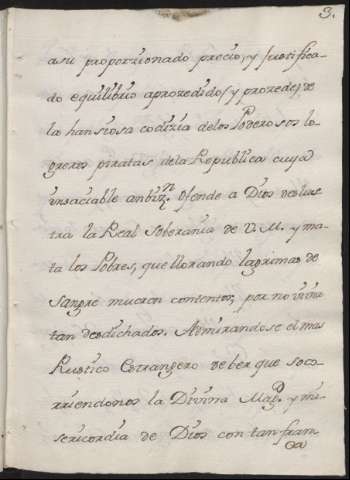 3.
asu proporzionado precio, y justifica-
do equilibrio aprozedido (y prozede) de
la hansiosa codizia delos Poderosos lo
greros piratas dela Republica cuya
insaciable anbizn. ofende a Dios deslus
tra la Real Soberania de V. M. y ma
ta los Pobres, que llorando lagrimas de
sangre mueren contentos, por no vivir
tan desdichados. Admirandose el mas
Rustico Estrangero de ber que soco-
rriendonos la Divina Magd. y mi
sericordia de Dios con tan fran
ca